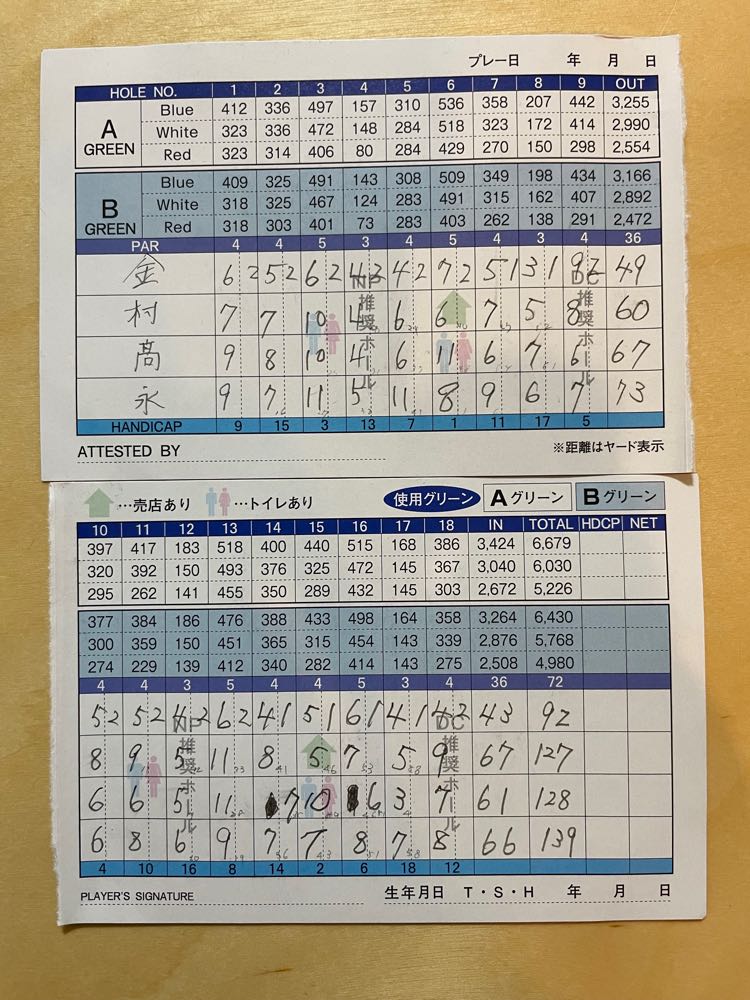 プレー日 年 月 日
HOLE NO. 1 2 3 4 5 6 7 8 9 OUT
A GREEN
Blue 412 336 497 157 310 536 358 207 442 3,255
White 323 336 472 148 284 518 323 172 414 2,990
Red 323 314 406 80 284 429 270 150 298 2,554
B GREEN
Blue 409 325 491 143 308 509 349 198 434 3,166
White 318 325 467 124 283 491 315 162 407 2,892
Red 318 303 401 73 283 403 262 138 291 2,472
PAR 4 4 5 3 4 5 4 3 4 36
金 6 2 5 2 6 2 4 2 4 2 7 2 5 1 3 1 9 2 49
村 7 7 10 4 6 6 7 5 8 60
高 9 8 10 4 6 11 6 7 6 67
永 9 7 11 5 11 8 9 6 7 73
NP推奨ホール
DC推奨ホール
HANDICAP 9 15 3 13 7 1 11 17 5
ATTESTED BY ※距離はヤード表示
…売店あり …トイレあり 使用グリーン Aグリーン Bグリーン
10 11 12 13 14 15 16 17 18 IN TOTAL HDCP NET
397 417 183 518 400 440 515 168 386 3,424 6,679
320 392 150 493 376 325 472 145 367 3,040 6,030
295 262 141 455 350 289 432 145 303 2,672 5,226
377 384 186 476 388 433 498 164 358 3,264 6,430
300 359 150 451 365 315 454 143 339 2,876 5,768
274 229 139 412 340 282 414 143 275 2,508 4,980
4 4 3 5 4 4 5 3 4 36 72
5 2 5 2 4 2 6 2 4 1 5 1 6 1 4 1 4 2 43 92
8 9 5 11 8 5 7 5 9 67 127
6 6 5 11 7 10 6 3 7 61 128
6 8 6 9 7 7 8 7 8 66 139
NP推奨ホール
DC推奨ホール
4 10 16 8 14 2 6 18 12
PLAYER'S SIGNATURE 生年月日 T・S・H 年 月 日